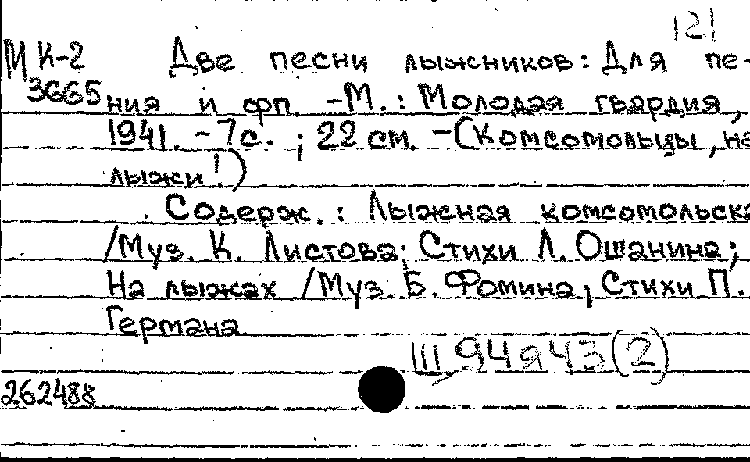 121
М К-2 Две песни лыжников: Для пе-
3665 ния и фп. -М.: Молодая гвардия,
1941. - 7 с. ; 22 см. -(Комсомольцы, на
лыжи!)
Содерж.: Лыжная комсомольска
/Муз. К. Листова; Стихи Л. Ошанина;
На лыжах /Муз. Б. Фомина; Стихи П.
Германа
III 94я43(2)
262488